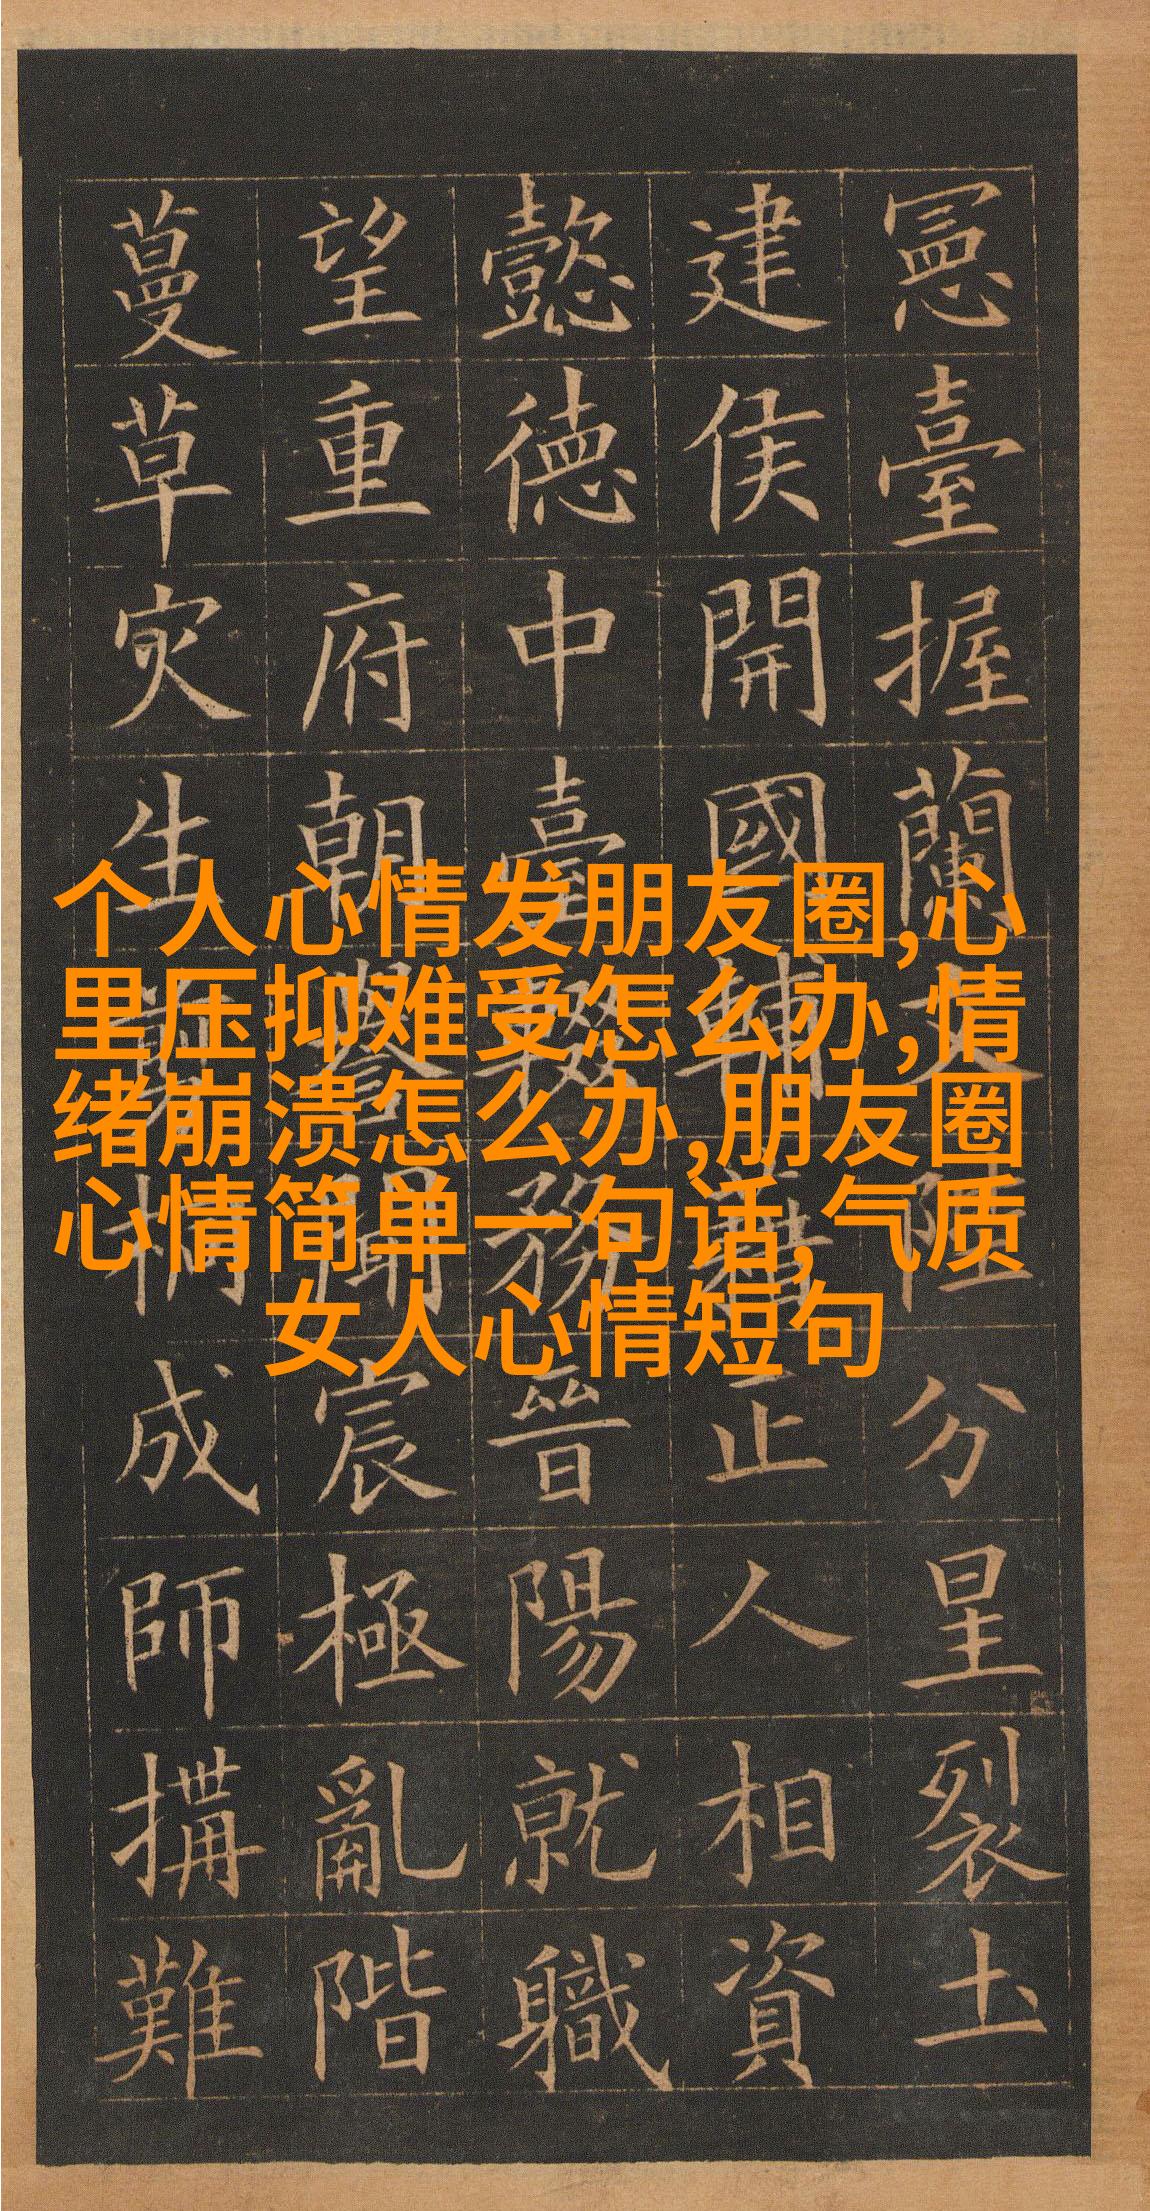 个人心情发朋友圈,心
里压抑难受怎么办,情
绪崩溃怎么办,朋友圈
心情简单一句话,气质
女人心情短句
憲臺握蘭文陛分星裂土
建侯開國輔藩正人相資
懿德中臺務晉陽就職
望重府朝譽聞宸極亂階
蔓草灾生剪桐成師搆難